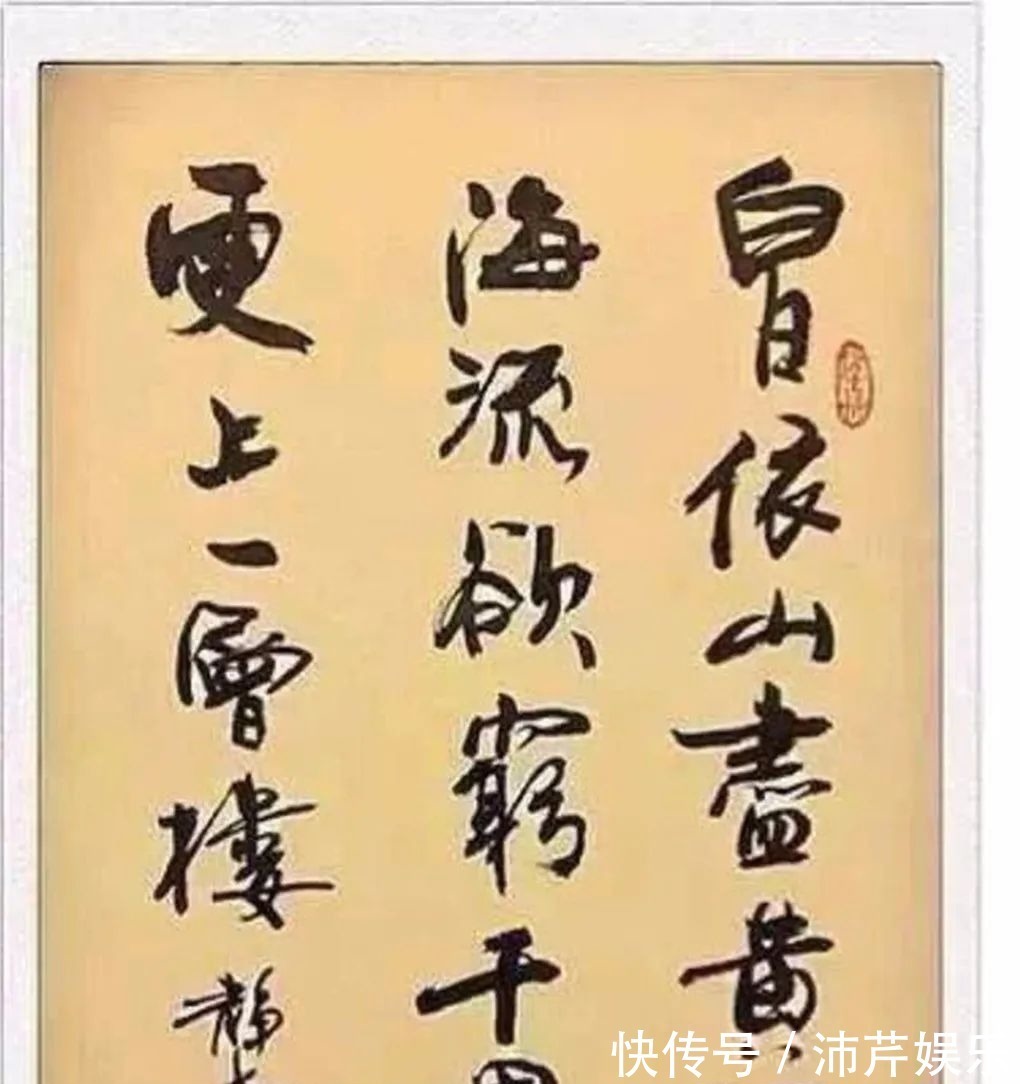 白日依山盡黃
海流欲窮千
更上一層樓 靜
快传号 / 沛芹娱乐